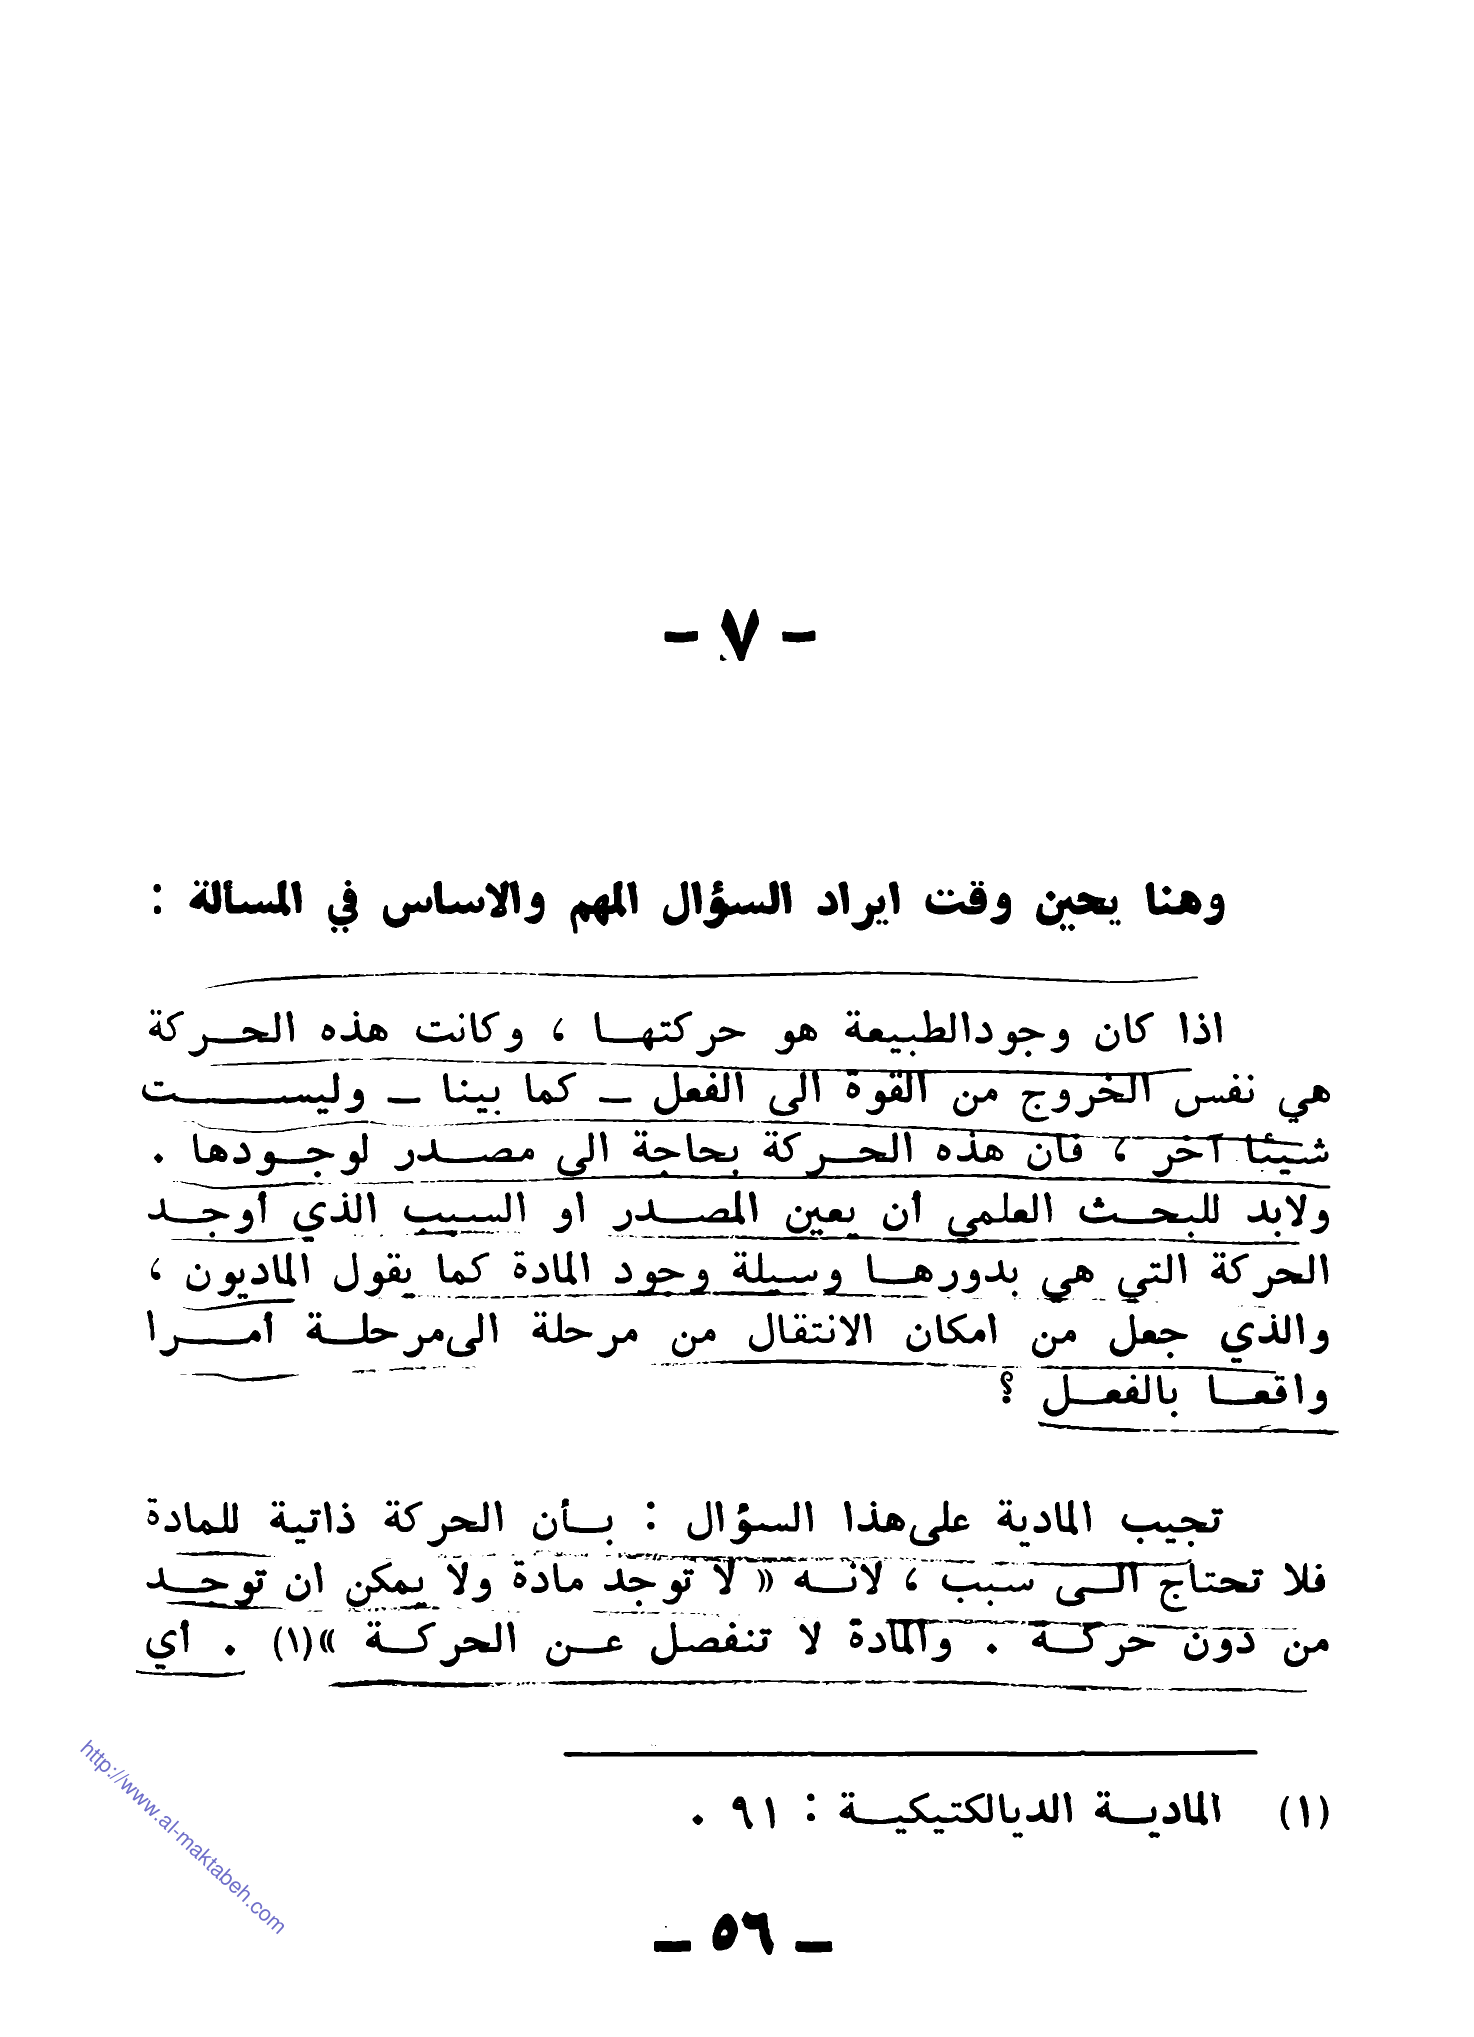 - ٧ -
وهنا يحين وقت ايراد السؤال المهم والاساس في المسألة :
اذا كان وجودالطبيعة هو حركتهــا ، وكانت هذه الحــركة
هي نفس الخروج من القوة الى الفعل – كما بينا – وليســـــت
شيئا آخر ، فان هذه الحــركة بحاجة الى مصــدر لوجــودها .
ولابد للبحــث العلمي أن يعين المصــدر او السبب الذي أوجــد
الحركة التي هي بدورهــا وسيلة وجود المادة كما يقول الماديون ،
والذي جعل من امكان الانتقال من مرحلة الىمرحلــة أمـــرا
واقعــا بالفعــل ؟
تجيب المادية علىهذا السؤال : بــأن الحركة ذاتية للمادة
فلا تحتاج الــى سبب ، لانــه « لا توجد مادة ولا يمكن ان توجــد
من دون حركــة . والمادة لا تنفصل عــن الحركــة »(١) . أي
(١) الماديــة الديالكتيكيــة : ٩١ .
– ٥٦ –
http://www.al-maktabeh.com